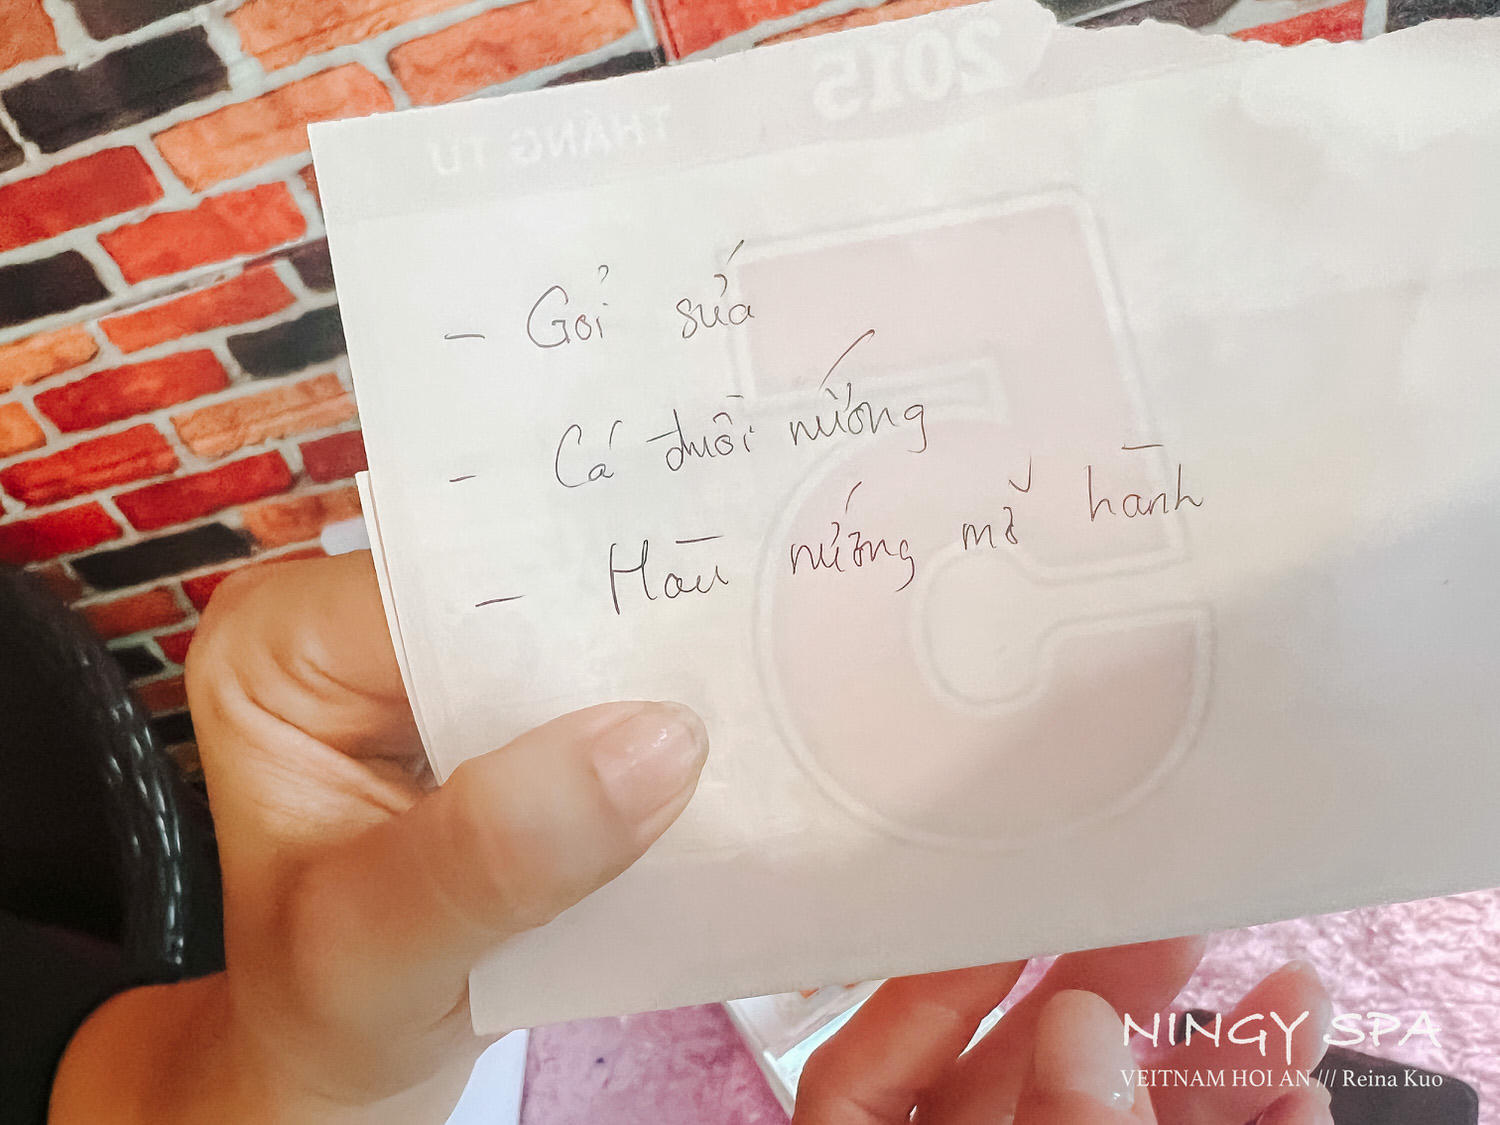 2015
THÁNG TƯ
5
- Gỏi sứa
- Cá đuối nướng
- Hàu nướng mỡ hành
NINGY SPA
VEITNAM HOI AN /// Reina Kuo